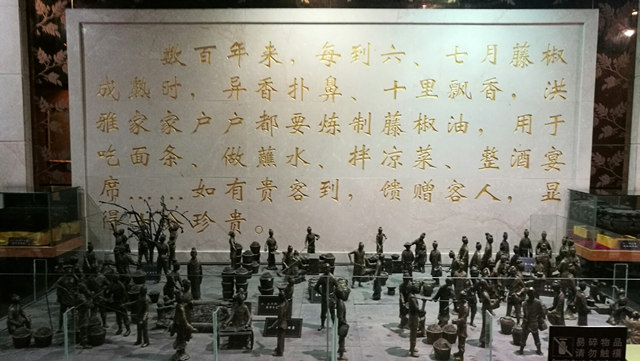 数百年来，每到六、七月藤椒
成熟时，异香扑鼻、十里飘香，洪
雅家家户户都要炼制藤椒油，用于
吃面条、做蘸水、拌凉菜、整酒宴
席……如有贵客到，馈赠客人，显
得 珍贵。
易碎物品
请勿触摸